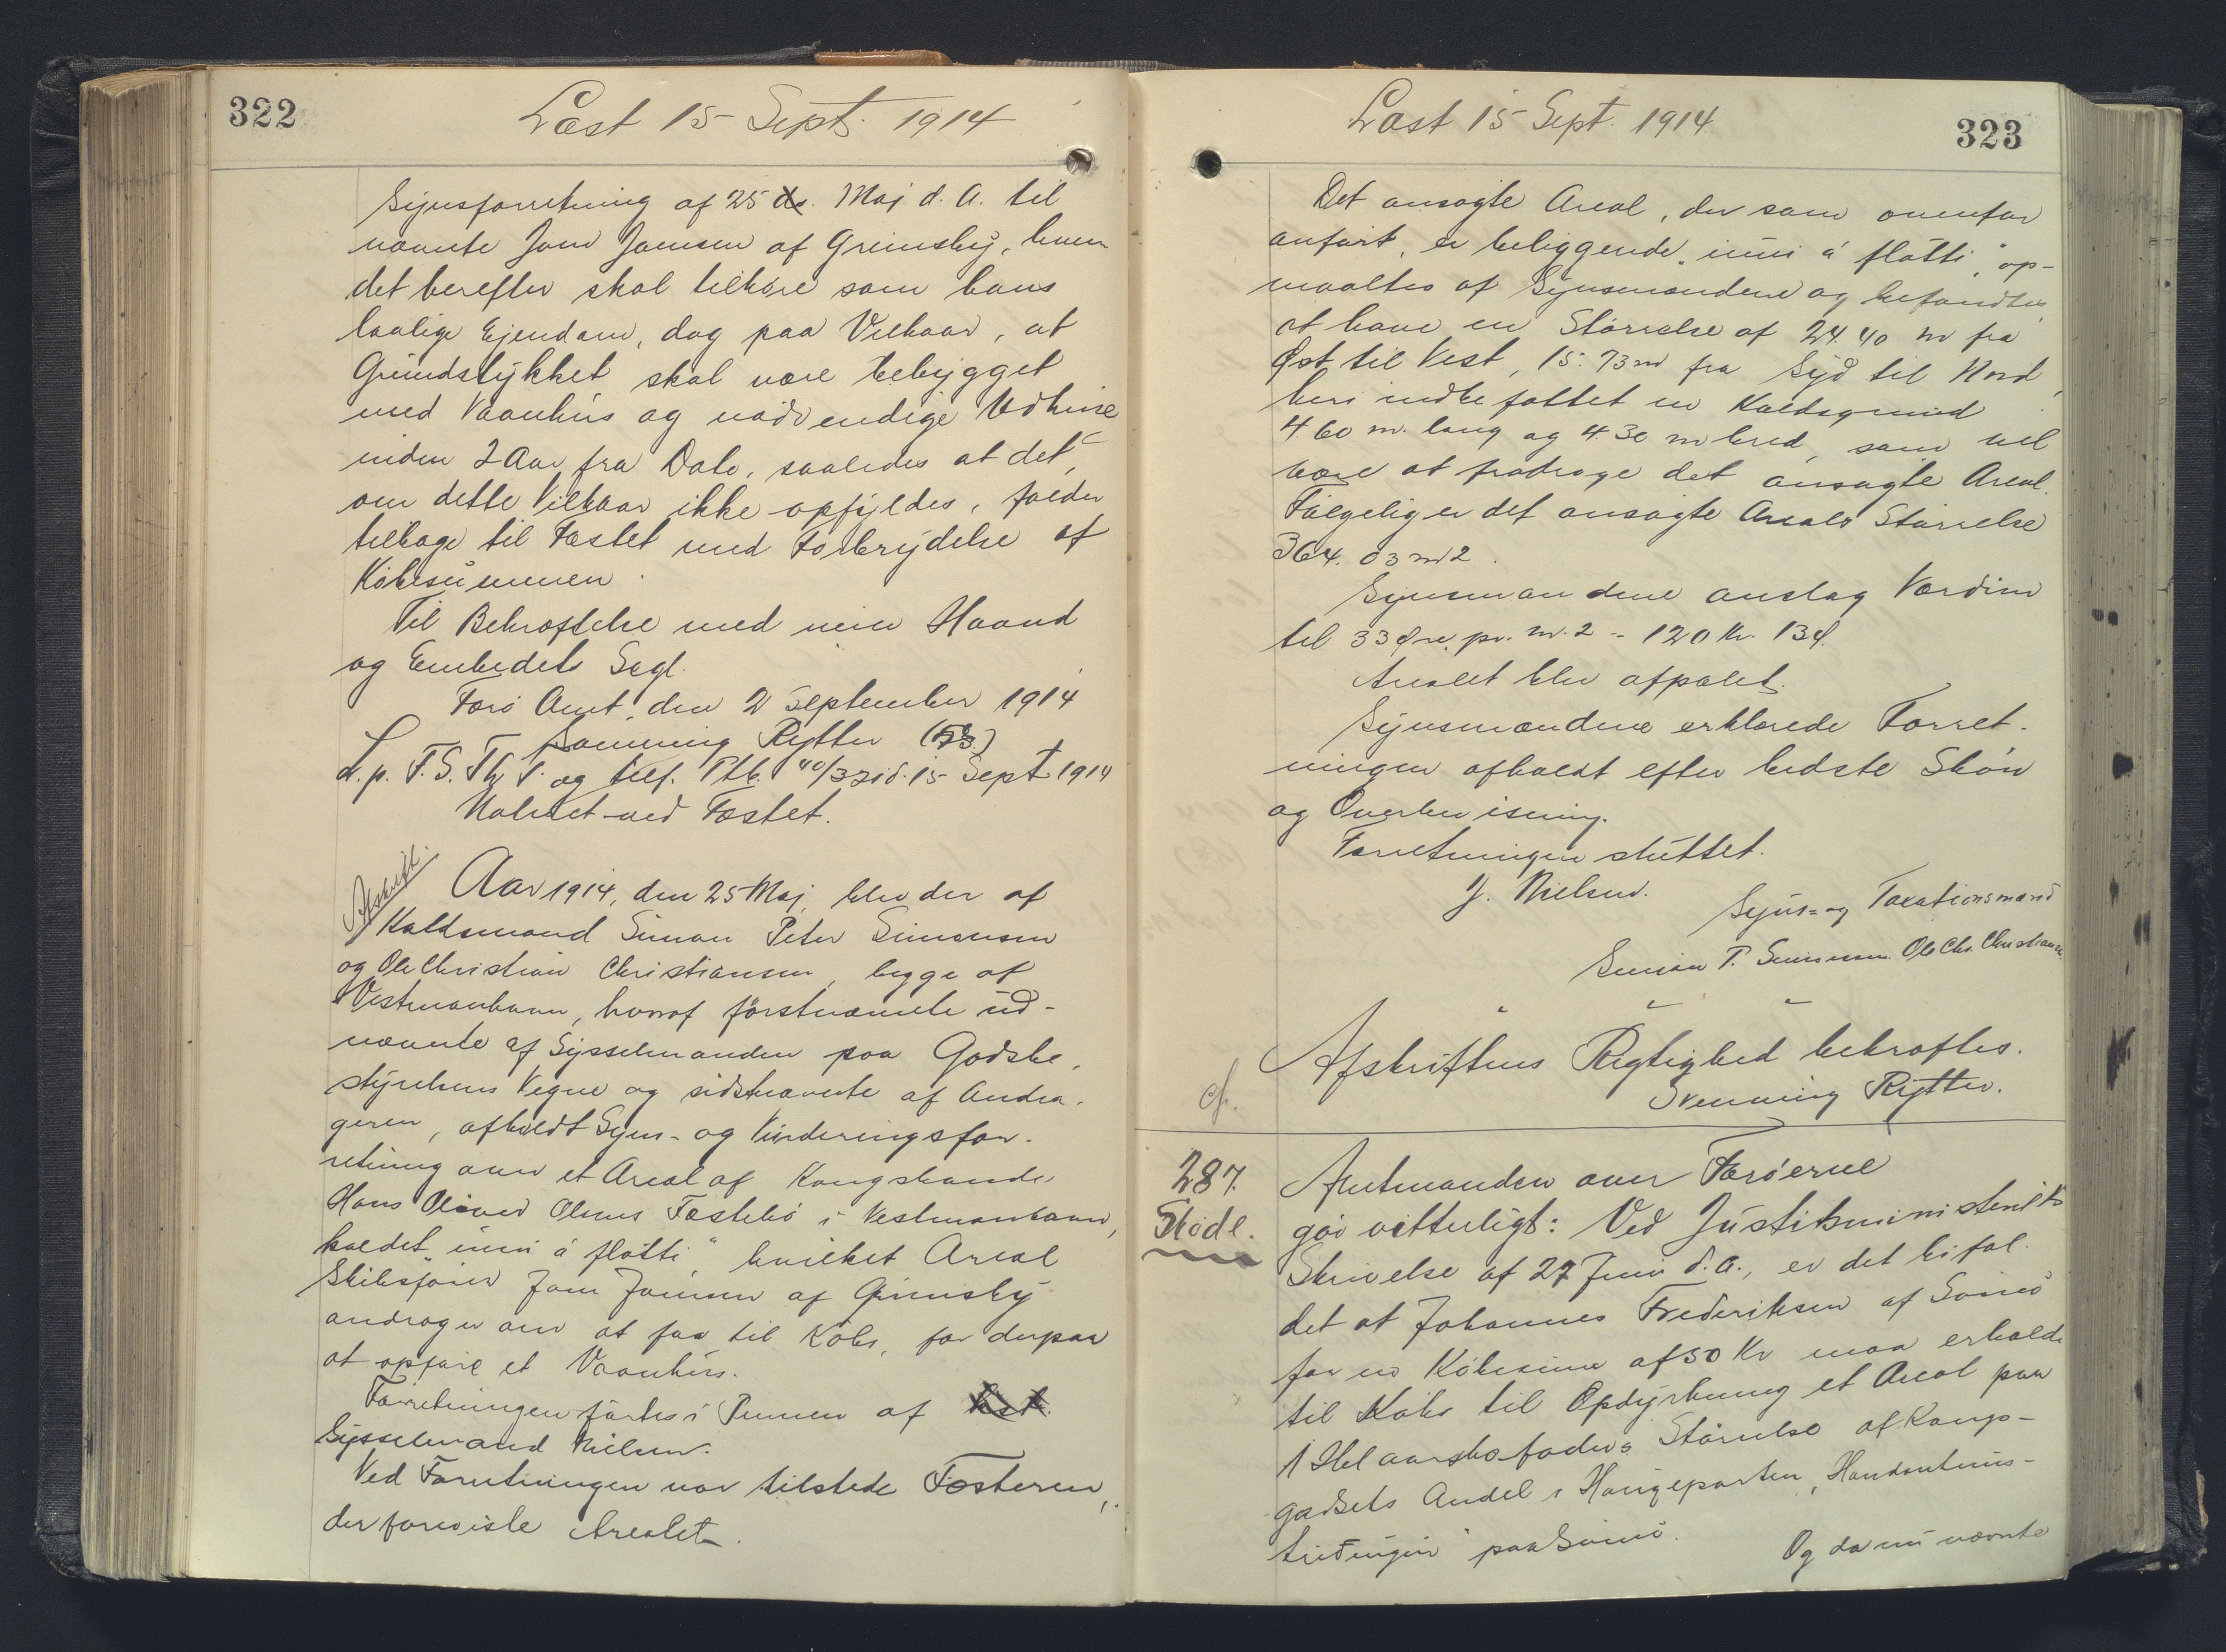 322
Læst 15 Sept. 1914
Synsforretning af 25 ds. Maj d. A. til
nævnte Jens Jensen af Grimsby, hvem
det herefter skal tilhøre som hans
lovlige Ejendom, dog paa Vilkaar, at
Grundstykket skal være bebygget
med Vaanhus og nødvendige Udhuse
inden 2 Aar fra Dato, saaledes at det,
om dette Vilkaar ikke opfyldes, falder
tilbage til Fæstet med Forbrydelse af
Købesummen.
Til Bekræftelse med min Haand
og Embedets Segl.
Færø Amt, den 2 September 1914
Svenning Rytter
L. p. F. S. Th. P. og 15 Sept 1914
Noteret ved Fæstet.
Afskrift.
Aar 1914, den 25 Maj, blev der af
Kaldsmand Simon Peter Simonsen
og Ole Christian Christiansen, begge af
Vestmanhavn, hvoraf förstnævnte ud-
nævnte af Sysselmanden paa Godsbe-
styrelsens Vegne og sidstnævnte af Andra-
geren, afholdt Syns- og Vurderingsfor-
retning over et Areal af Kongsbonde
Hans Oliver Olsens Fæstebø i Vestmanhavn,
kaldet "inni á fløtti" hvilket Areal
Skibsfører Jens Jensen af Grimsby
andrager om at faa til Købs, for derpaa
at opføre et Vaanhus.
Forretningen førtes i Pennen af
Sysselmand Nielsen.
Ved Forretningen var tilstede Fæsteren,
der foreviste Arealet.
Læst 15 Sept. 1914
323
Det ansøgte Areal, der som ovenfor
anført, er beliggende "inni á fløtti", op-
maaltes af Synsmændene og befandtes
at have en Størrelse af 24.40 m fra
Øst til Vest, 15.73 m fra Syd til Nord,
heri indbefattet en Kaldsgrund
4.60 m. lang og 4.30 m bred, som vil
være at fradrage det ansøgte Areal.
Følgelig er det ansøgte Areals Størrelse
364.03 m2.
Synsmændene anslog Værdien
til 33 Øre pr. m.2 - 120 Kr. 13 Ø.
Arealet blev afpælet.
Synsmændene erklærede Forret-
ningen afholdt efter bedste Skøn
og Overbevisning.
Forretningen sluttet.
J. Nielsen.
Syns- og Taxationsmænd
Simon P. Simonsen. Ole Chr. Christiansen
Afskriftens Rigtighed bekræftes.
Svenning Rytter.
cf.
287.
Skøde.
Amtmanden over Færøerne
gør vitterligt: Ved Justitsministeriets
Skrivelse af 27 Juni d. A., er det bifal-
det at Johannes Frederiksen af Svinø
for en Købesum af 50 Kr maa erholde
til Købs til Opdyrkning et Areal paa
1 Helaarskofoders Størrelse af Kongs-
godsets Andel i Haugeparten,
paa Svinø.
Og da nu nævnte